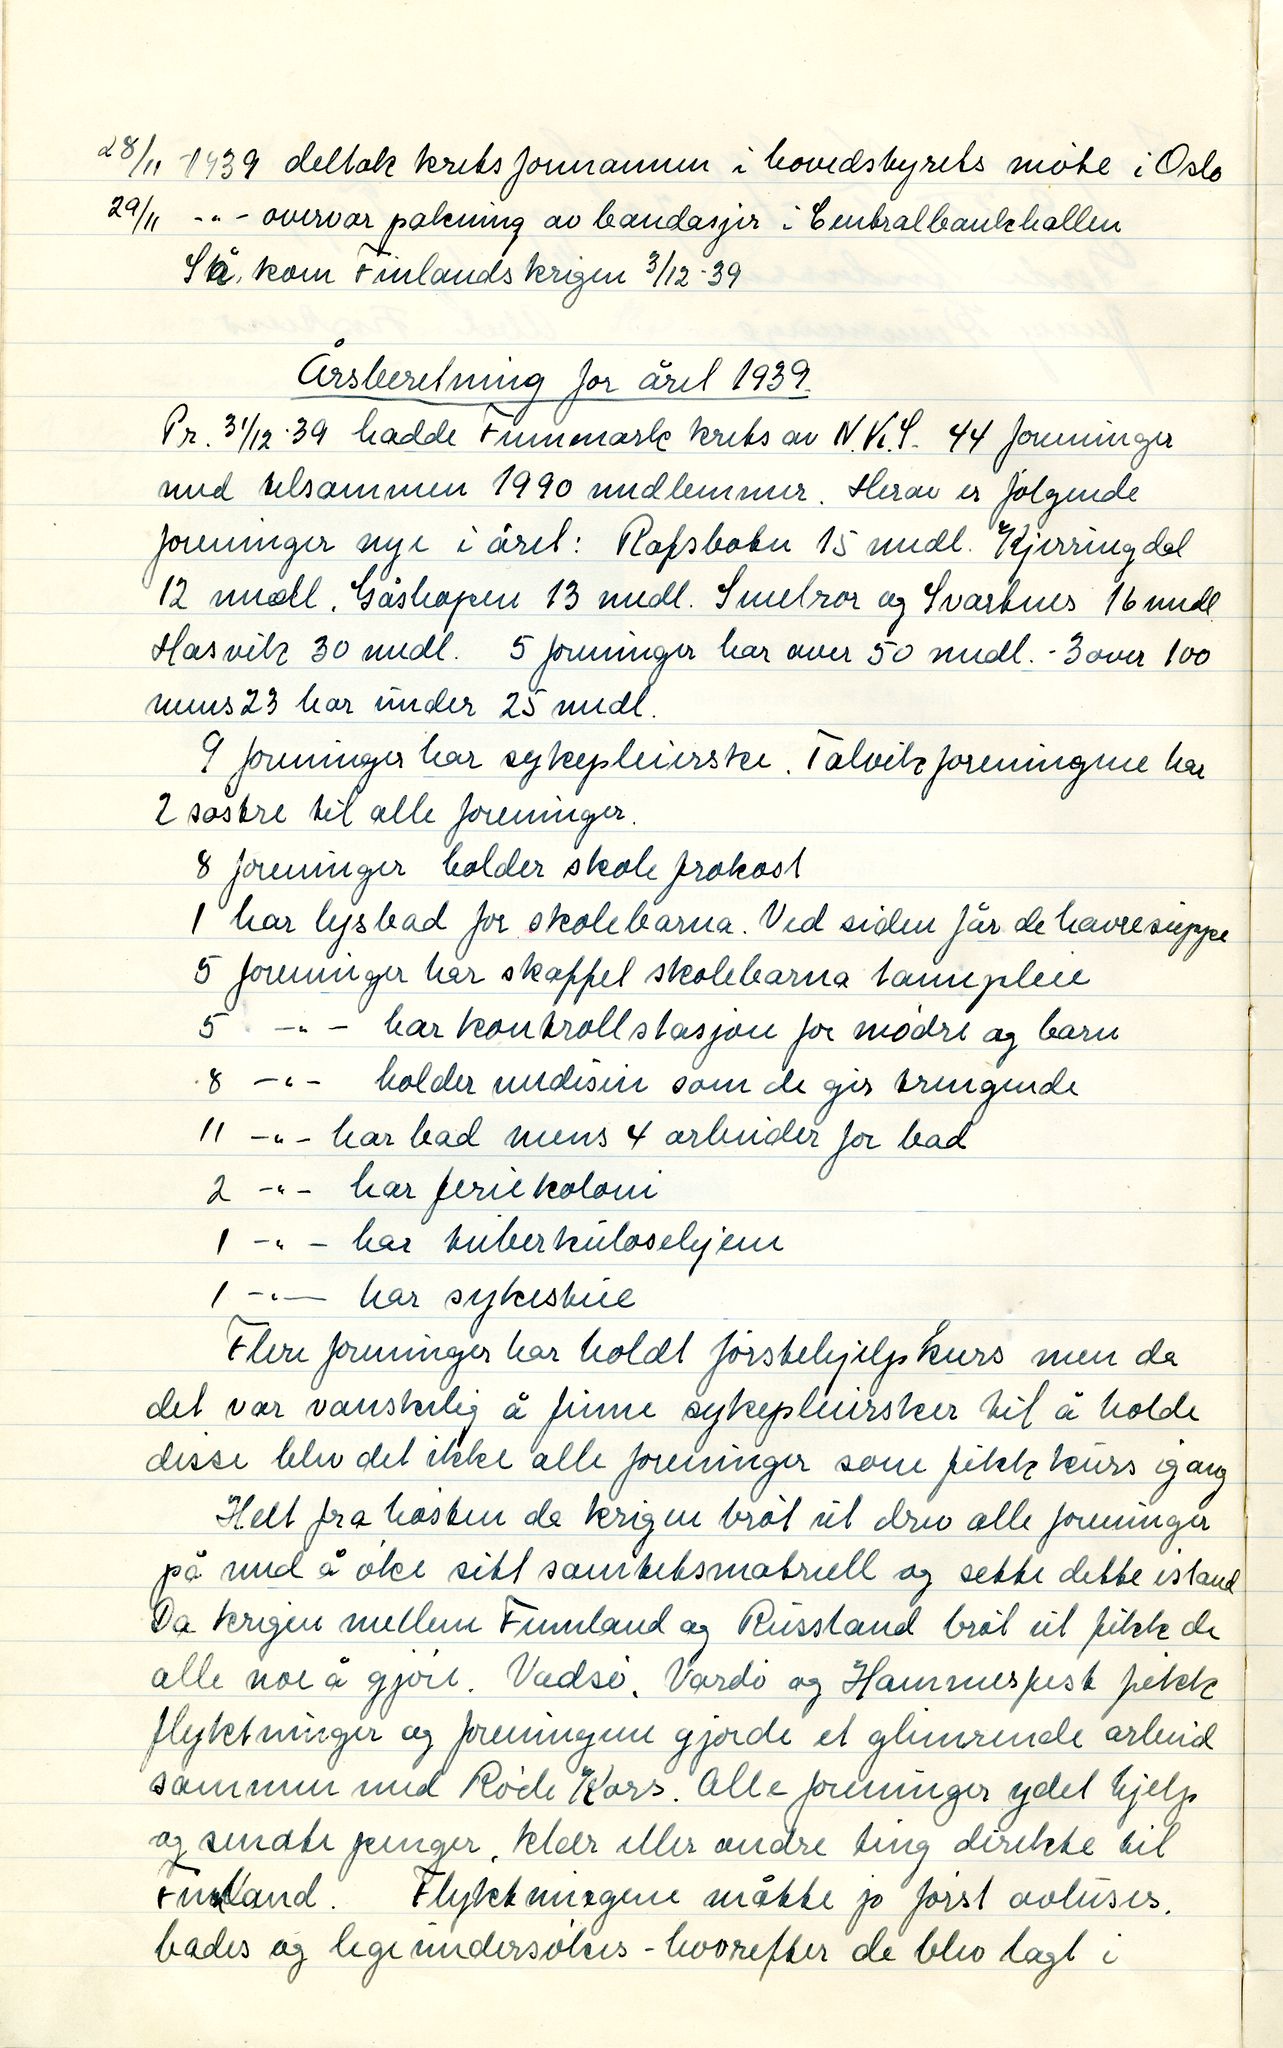 28/11 1939 deltok kretsformannen i hovedstyrets møte i Oslo
29/11 -"- overvar pakning av bandasjer i Centralbankhallen
Så kom Finlandskrigen 3/12-39
Årsberetning for året 1939.
Pr. 31/12-39 hadde Finnmark krets av N.K.S. 44 foreninger
med tilsammen 1990 medlemmer. Herav er følgende
foreninger nye i året: Rafsbotn 15 medl. Kjerringdal
12 medl, Gåshopen 13 medl. Smelror og Svartnes 16 medl
Hasvik 30 medl. 5 foreninger har over 50 medl. - 3 over 100
mens 23 har under 25 medl.
9 foreninger har sykepleierske. Talvikforeningene har
2 søstre til alle foreninger.
8 foreninger holder skolefrokost
1 har lysbad for skolebarna. Ved siden får de havresuppe
5 foreninger har skaffet skolebarna tannpleie
5 -"- har kontrollstasjon for mødre og barn
8 -"- holder medisin som de gir trengende
11 -"- har bad mens 4 arbeider for bad
2 -"- har feriekoloni
1 -"- har tuberkulosehjem
1 -"- har sykestue
Flere foreninger har holdt førstehjelpskurs men da
det var vanskelig å finne sykepleiersker til å holde
disse blev det ikke alle foreninger som fikk kurs igang
Helt fra høsten da krigen brøt ut drev alle foreninger
på med å øke sitt sanitetsmatriell og sette dette istand
Da krigen mellem Finnland og Russland brøt ut fikk de
alle noe å gjøre. Vadsø, Vardø og Hammerfest fikk
flyktninger og foreningene gjorde et glimrende arbeid
sammen med Røde Kors. Alle foreninger ydet hjelp
og sendte penger, klær eller andre ting direkte til
Finland. Flyktningene måtte jo først avluses,
bades og legeundersøkes - hvorefter de blev lagt i